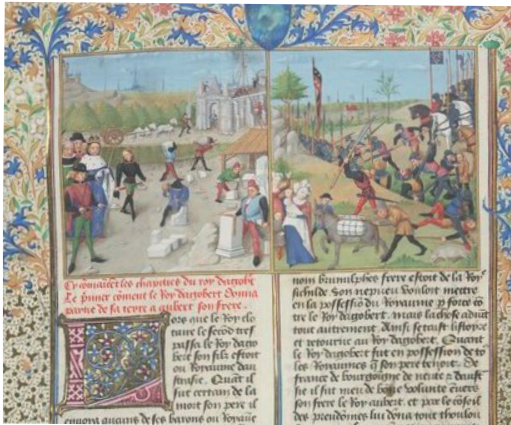 Cy comācet les chapitres du roy dagobt
Le pmier cōment le Roy dagobert donna
partie de sa terre a aubert son frere.
eos que le Roy clo
taire le secōd tres
passa le Roy dago
bert son filz estoit
ou Royaume dau
strasie. Quāt il
fut certain de la
mort son pere il
encora aucuns de ses barons ou Royaūe
nom brunulphes frere estoit de la Roy
sichilde son nepueu vouloit mettre
en la possessiō du Royaume p force cō
tre le Roy dagobert. mais la chose aduīt
tout autrement. Ainsi se taist listoire
et retourne au Roy dagobert. Quant
le Roy dagobert fut en possession de to
les Royaumes q̄ son pere tenoit. De
france de bourgoigne de neutrie daust
sie il fut meu de bōne volunte enuers
son frere le Roy aubert. et par le cōseil
des preudomes lui dōna tout thoulou